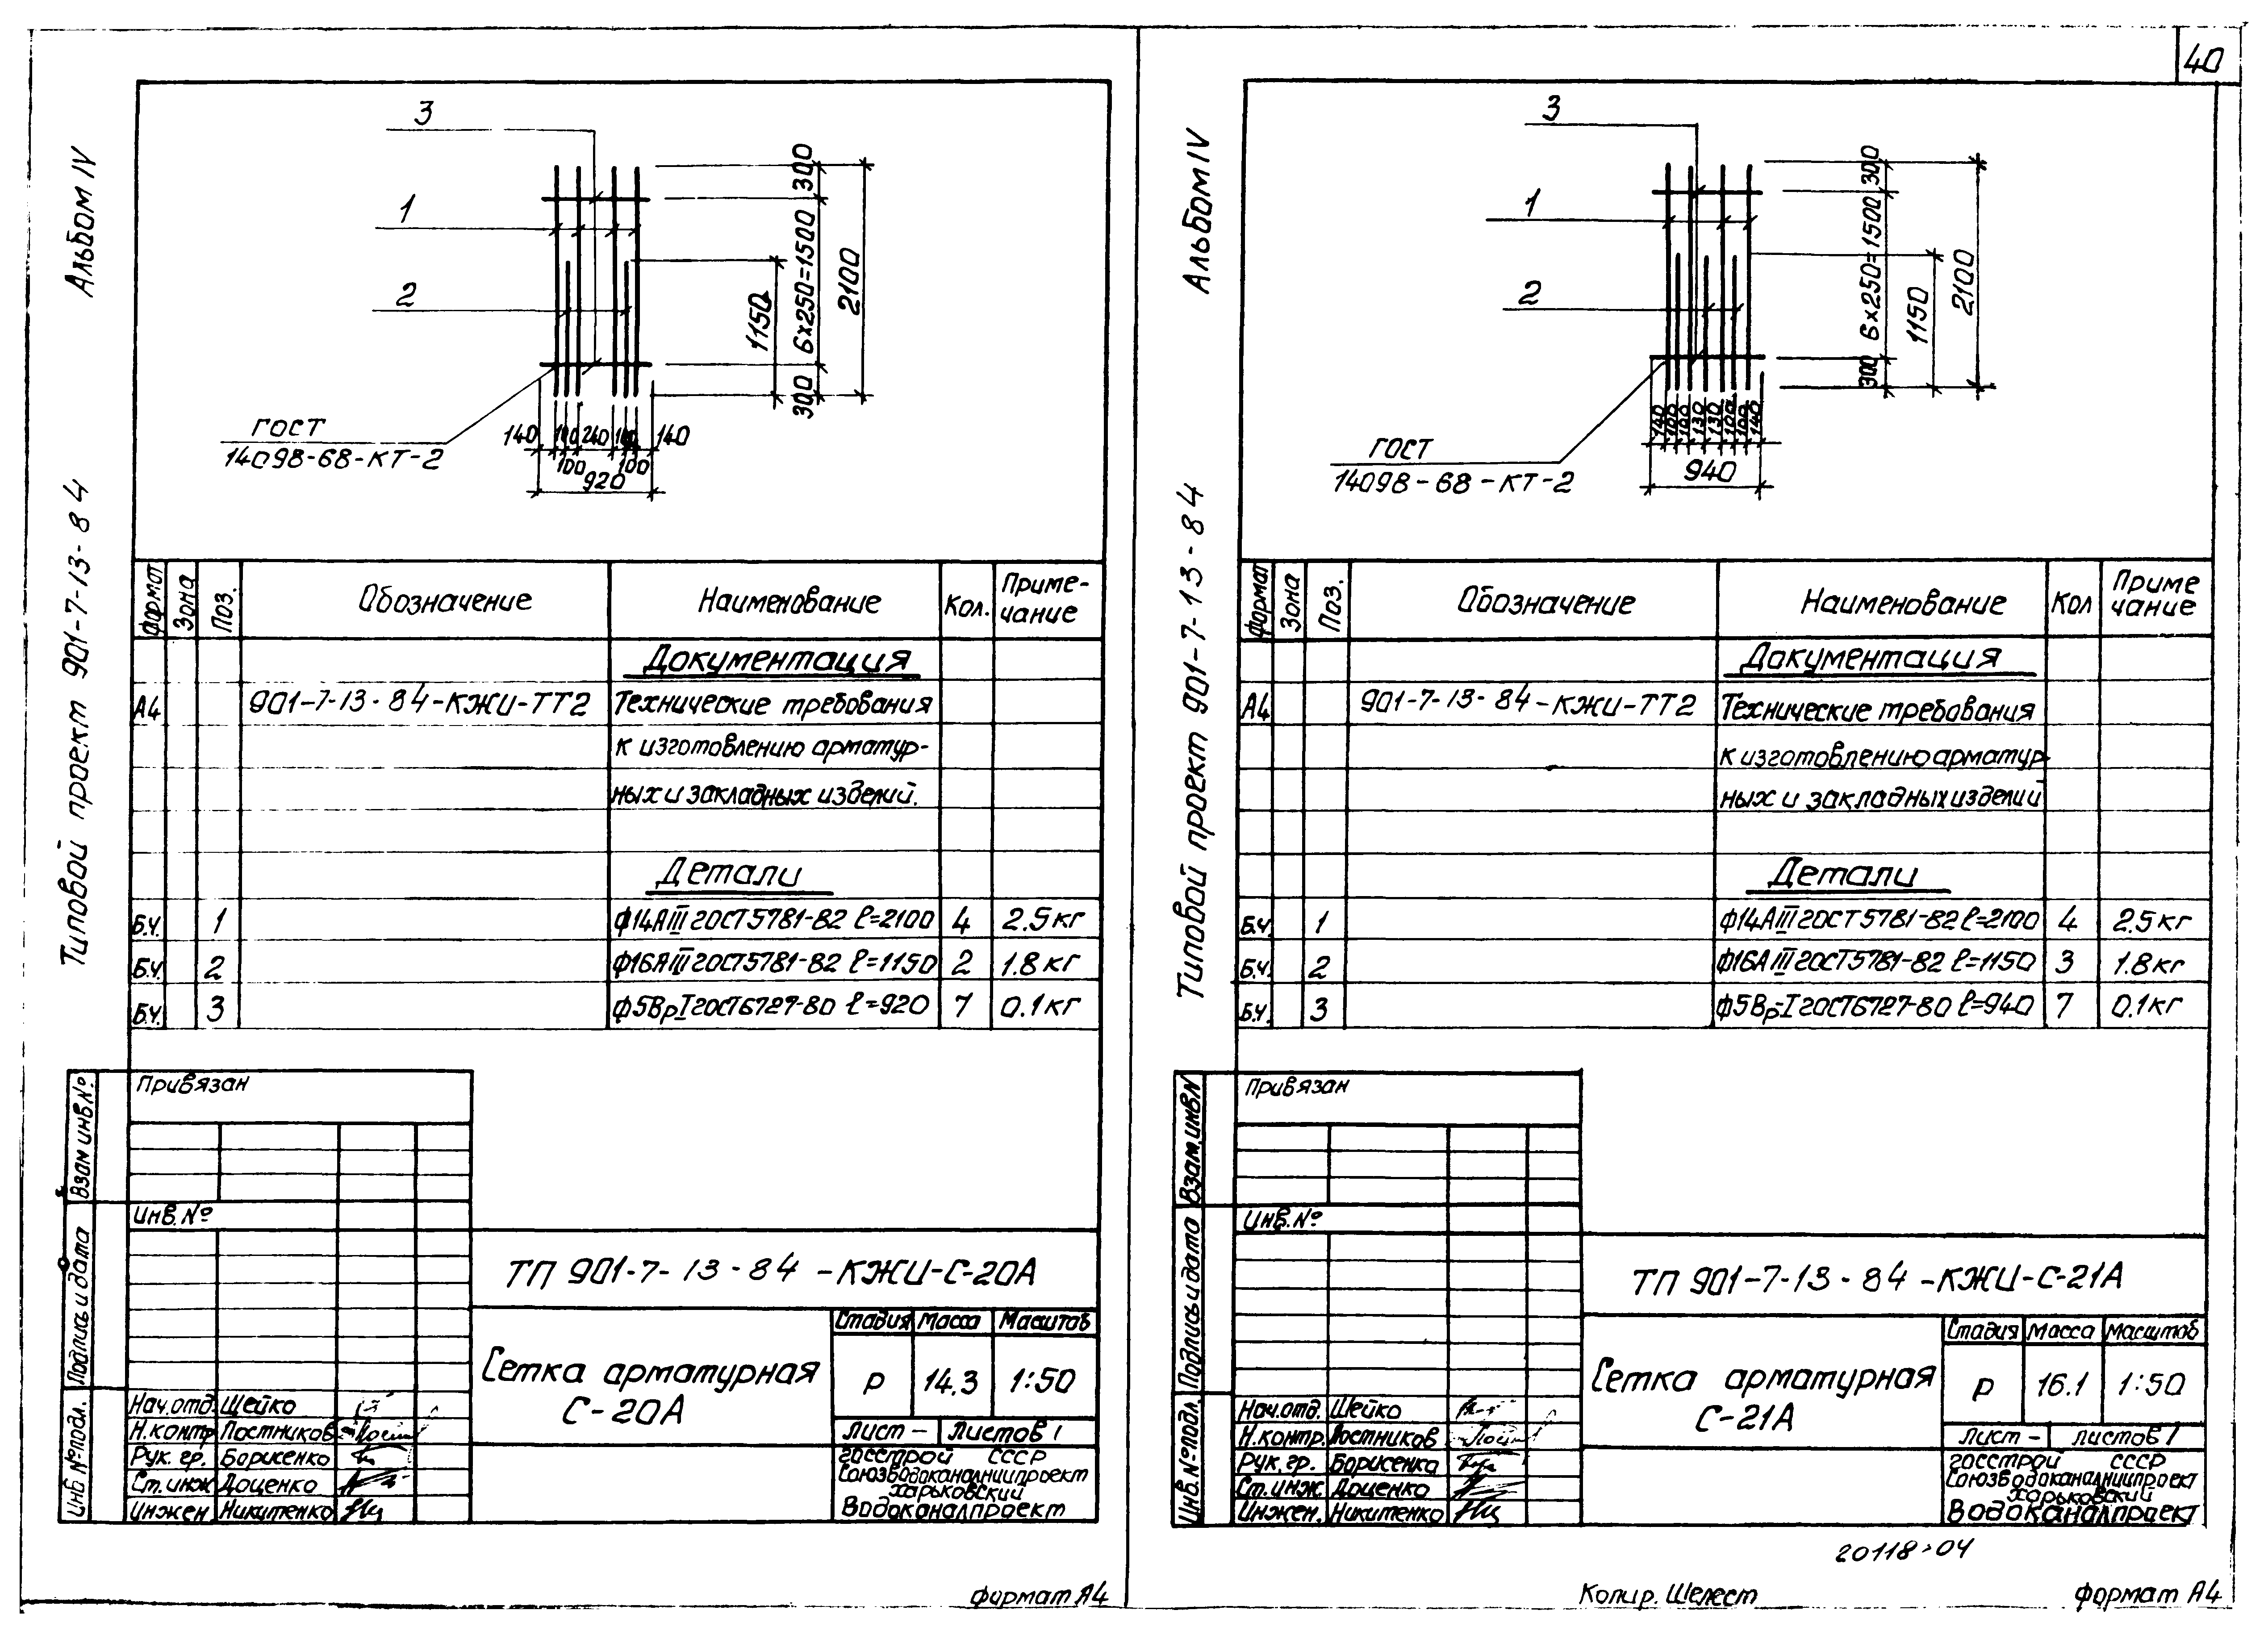 40
Альбом IV
Типовой проект 901-7-13-84
3
1
2
300
6×250=1500
300
1150
2100
ГОСТ
14098-68-КТ-2
140 100 240 100 140
100 100
920
Формат Зона Поз. Обозначение Наименование Кол. Приме-
чание
Документация
А4 901-7-13-84-КЖИ-ТТ2 Технические требования
к изготовлению арматур-
ных и закладных изделий.
Детали
Б.ч. 1 ф14АIII ГОСТ5781-82 ℓ=2100 4 2.5кг
Б.ч. 2 ф16АIII ГОСТ5781-82 ℓ=1150 2 1.8кг
Б.ч. 3 ф5ВрI ГОСТ6727-80 ℓ=920 7 0.1кг
Привязан
Инв.№
Взам инв№
Подпись и дата
Инв №подл.
ТП 901-7-13-84-КЖИ-С-20А
Сетка арматурная
С-20А
Стадия Масса Масштаб
Р 14.3 1:50
Лист – Листов 1
Нач.отд. Шейко
Н.контр Постников
Рук. гр. Борисенко
Ст.инж Доценко
Инжен Никитенко
Госстрой СССР
Союзводоканалниипроект
Харьковский
Водоканалпроект
Формат А4
Альбом IV
Типовой проект 901-7-13-84
3
1
2
300
6×250=1500
300
1150
2100
ГОСТ
14098-68-КТ-2
140 100 100 130 130 100 100 140
940
Формат Зона Поз. Обозначение Наименование Кол Приме
чание
Документация
А4 901-7-13-84-КЖИ-ТТ2 Технические требования
к изготовлению арматур-
ных и закладных изделий
Детали
Б.ч. 1 ф14АIII ГОСТ5781-82 ℓ=2100 4 2.5кг
Б.ч. 2 ф16АIII ГОСТ5781-82 ℓ=1150 3 1.8кг
Б.ч. 3 ф5Вр-I ГОСТ6727-80 ℓ=940 7 0.1кг
Привязан
Инв.№
Взам.инв.N
Подпись и дата
Инв.№подл
ТП 901-7-13-84-КЖИ-С-21А
Сетка арматурная
С-21А
Стадия Масса Масштаб
Р 16.1 1:50
Лист – Листов 1
Нач.отд. Шейко
Н.контр. Постников
Рук.гр. Борисенко
Ст.инж. Доценко
Инжен. Никитенко
Госстрой СССР
Союзводоканалниипроект
Харьковский
Водоканалпроект
20118-04
Копир. Шелест
Формат А4